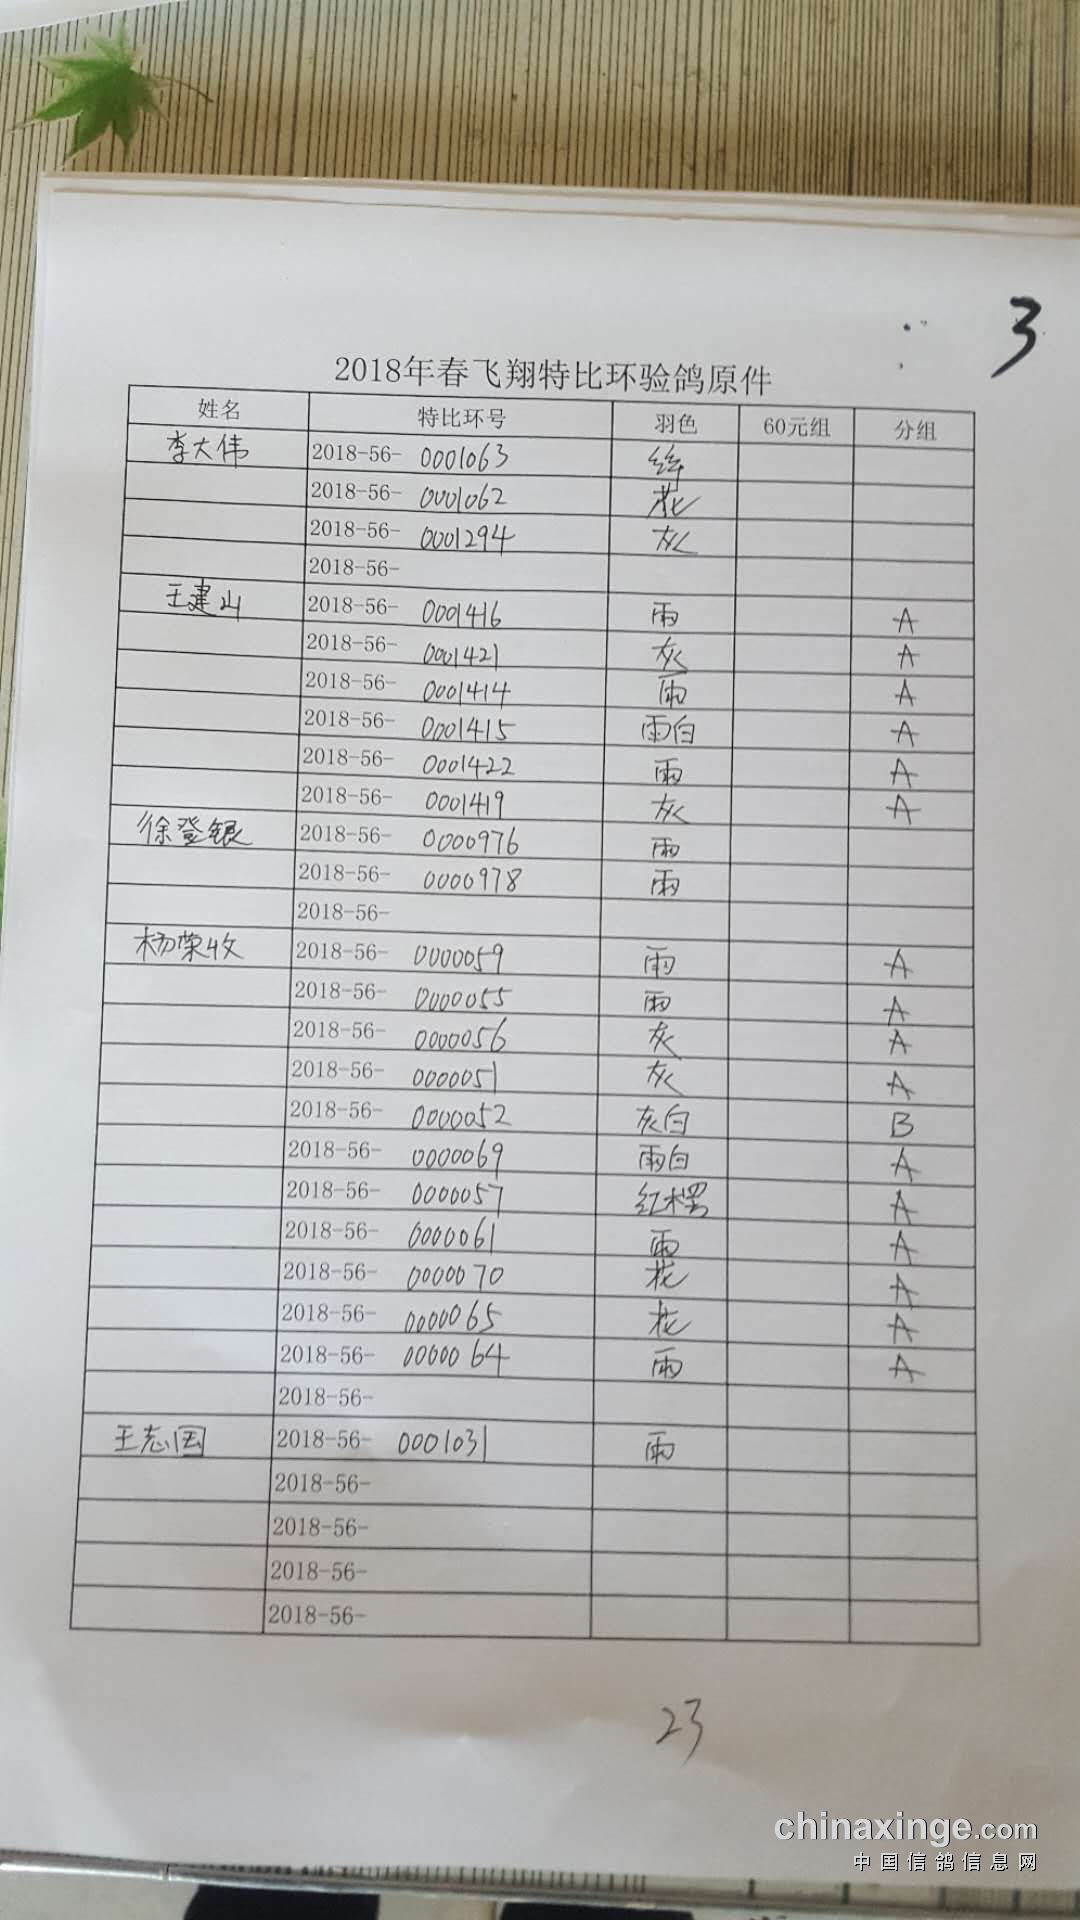 3
2018年春飞翔特比环验鸽原件
姓名 特比环号 羽色 60元组 分组
李大伟 2018-56- 0001063 绛
2018-56- 0001062 花
2018-56- 0001294 灰
2018-56-
王建山 2018-56- 0001416 雨 A
2018-56- 0001421 灰 A
2018-56- 0001414 雨 A
2018-56- 0001415 雨白 A
2018-56- 0001422 雨 A
2018-56- 0001419 灰 A
徐登银 2018-56- 0000976 雨
2018-56- 0000978 雨
2018-56-
杨荣收 2018-56- 0000059 雨 A
2018-56- 0000055 雨 A
2018-56- 0000056 灰 A
2018-56- 0000051 灰 A
2018-56- 0000052 灰白 B
2018-56- 0000069 雨白 A
2018-56- 0000057 红楞 A
2018-56- 0000061 雨 A
2018-56- 0000070 花 A
2018-56- 0000065 花 A
2018-56- 0000064 雨 A
2018-56-
王志国 2018-56- 0001031 雨
2018-56-
2018-56-
2018-56-
2018-56-
23
chinaxinge.com
中国信鸽信息网